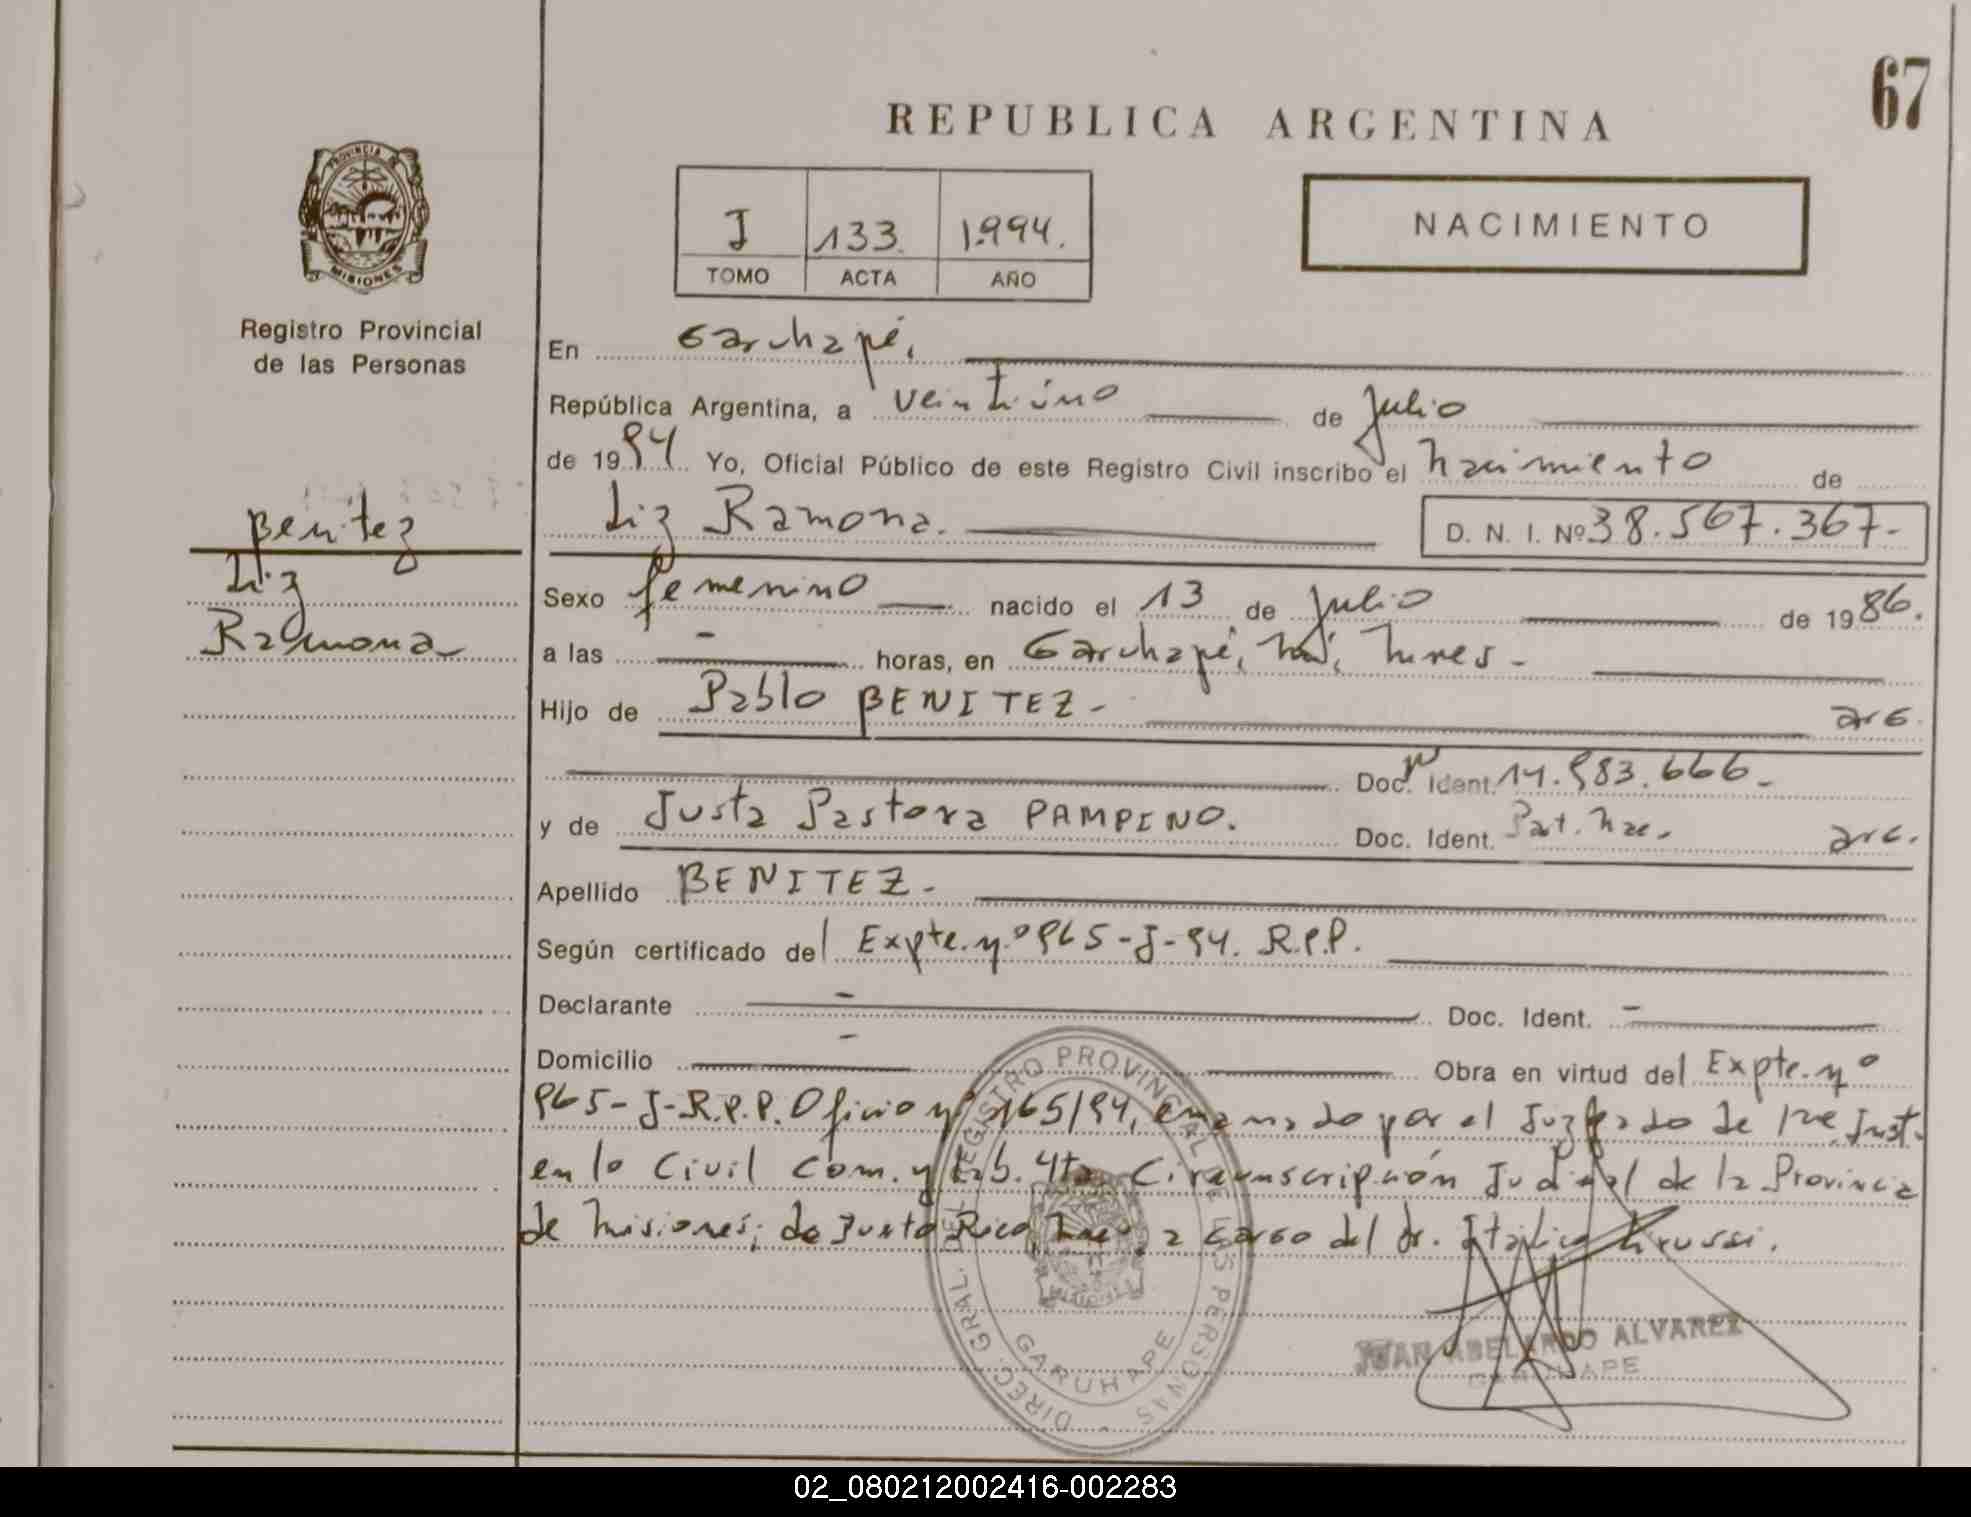 67
REPUBLICA ARGENTINA
PROVINCIA DE
MISIONES
Registro Provincial
de las Personas
J 133. 1.994.
TOMO ACTA AÑO
NACIMIENTO
En Garuhapé,
República Argentina, a veintiúno de Julio
de 1994 Yo, Oficial Público de este Registro Civil inscribo el nacimiento de
Benitez
Liz Ramona. D. N. I. Nº 38.567.367-
Liz
Ramona
Sexo femenino nacido el 13 de Julio de 1986.
a las - horas, en Garuhapé,
Hijo de Pablo BENITEZ- arg.
Doc. Ident. 14.983.666-
y de Justa Pastora PAMPINO. Doc. Ident. Part. Nac. arg.
Apellido BENITEZ-
Según certificado del Expte. nº 965-J-94. R.P.P.
Declarante - Doc. Ident. -
Domicilio - Obra en virtud del Expte. nº
965-J-R.P.P. Oficio nº 165/94, emanado por el Juzgado de 1ra. Inst.
en lo Civil Com. y Lab. 4ta Circunscripción Judicial de la Provincia
de Misiones, de Puerto Rico, a cargo del dr.
DIREC. GRAL. DEL REGISTRO PROVINCIAL DE LAS PERSONAS
GARUHAPE
JUAN ABELARDO ALVAREZ
GARUHAPE
02_080212002416-002283